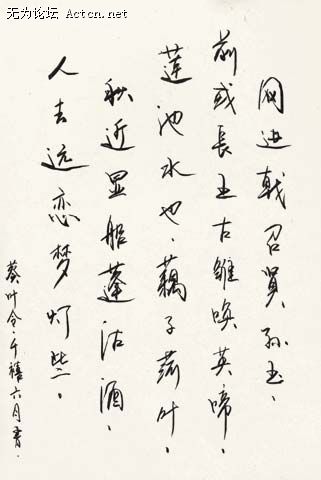 无为论坛 Actcn.net
网进戟召冥孙玉、
前或长王古雏唤英啼、
莲池水也、藕子荷叶、
秋近显船蓬沽酒、
人去远恋梦灯些。
葵叶令、千禧六月書.